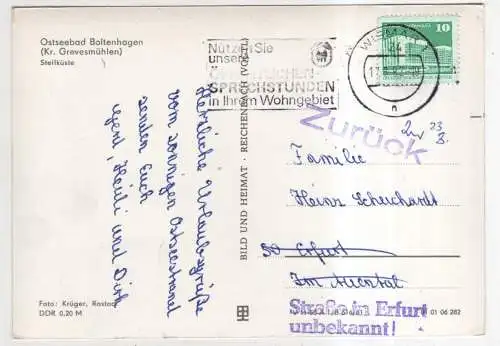 Ostseebad Boltenhagen
(Kr. Grevesmühlen)
Steilküste
Herzliche Urlaubsgrüße
vom sonnigen Ostseestrand
senden Euch
Heidi und Dirk
Foto: Krüger, Rostock
DDR 0,20 M
BILD UND HEIMAT · REICHENBACH (VOGTL.)
Nützen Sie
unsere
ÖFFENTLICHEN
SPRECHSTUNDEN
in Ihrem Wohngebiet
WISMAR
24
10
Zurück
Familie
Heinz Scheichardt
50 Erfurt
Im Auental
Straße in Erfurt
unbekannt!
01 06 282